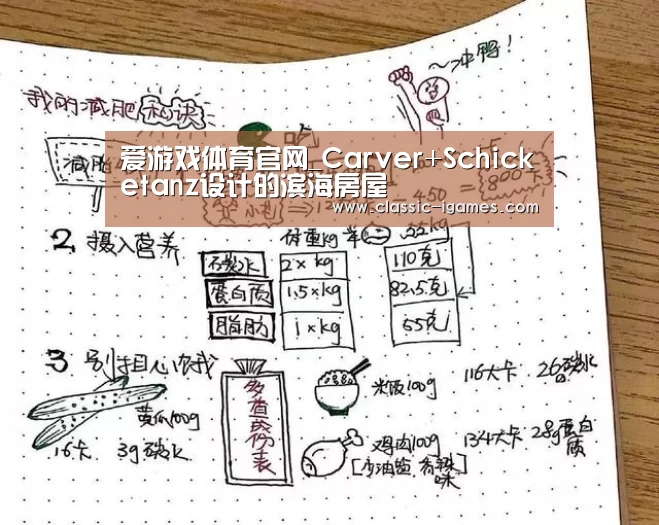 ~冲鸭!
我的减肥秘诀
减脂
爱游戏体育官网_Carver+Schick
etanz设计的滨海房屋
450 = 800卡
www.classic-igames.com
2. 摄入营养
体重kg
55kg
碳水 2×kg 110克
蛋白质 1.5×kg 82.5克
脂肪 1×kg 55克
3
黄瓜100g
16卡 3g碳水
多看成份表
米饭100g 116大卡 26碳水
鸡肉100g 134大卡 28g蛋白质
[少油盐,香辣味]